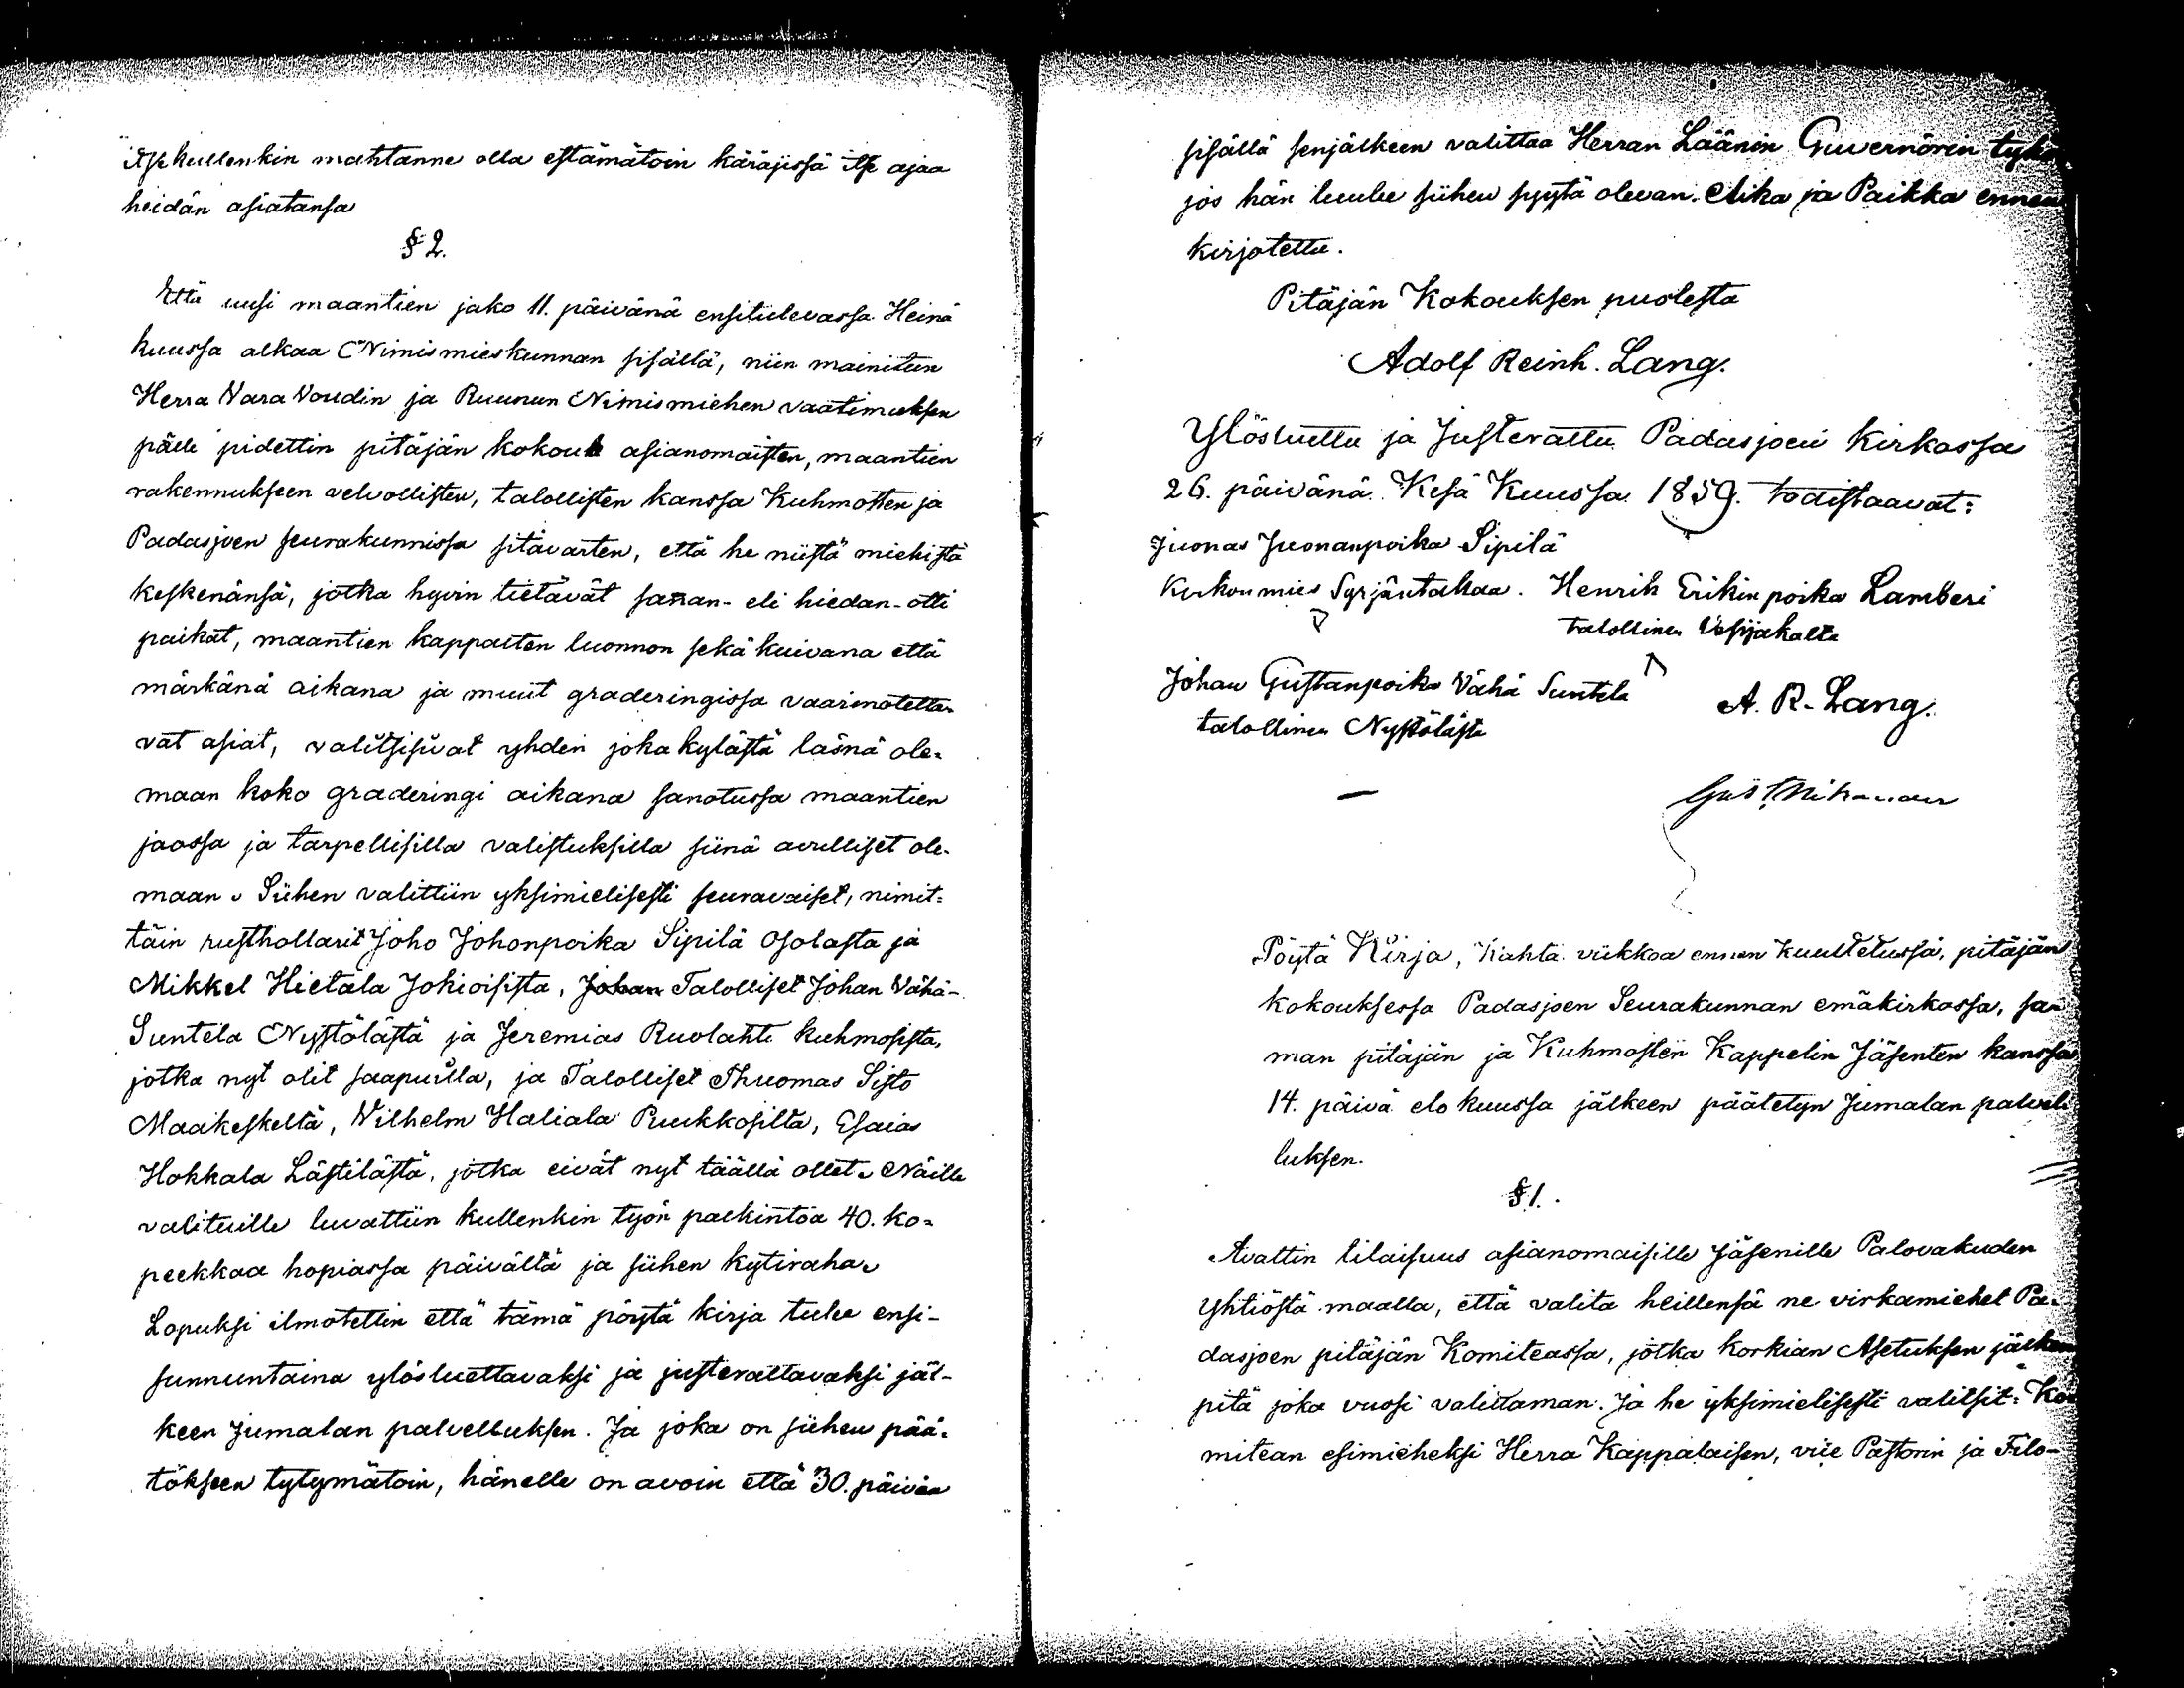 itsekullenkin mahtanne olla estämätöin käräjissä itse ajaa
heidän asiatansa
§ 2.
Että uusi maantien jako 11. päivänä ensitulevassa Heinä
kuussa alkaa Nimismieskunnan sisällä, niin mainitun
Herra Vara Voudin ja Ruunun Nimismiehen vaatimuksen
pälle pidettin pitäjän kokous asianomaisten, maantien
rakennukseen velvollisten, talollisten kanssa Kuhmosten ja
Padasjoen seurakunnissa sitävarten, että he niistä miehistä
keskenänsä, jotka hyvin tietävät sannan- eli hiedan-otti
paikat, maantien kappalten luonnon sekä kuivana että
märkänä aikana ja muut graderingissa vaarinotetta-
vat asiat, valitsisivat yhden joka kylästä läsnä ole-
maan koko graderingi aikana sanotussa maantien
jaossa ja tarpellisilla valistuksilla siinä avulliset ole-
maan. Siihen valittiin yksimielisesti seuravaiset, nimit-
täin rusthollarit Joho Johonpoika Sipilä Osolasta ja
Mikkel Hietala Jokioisista, Johan Talolliset Johan Vähä-
Suntela Nystölästä ja Jeremias Ruolahti kuhmosista,
jotka nyt olit saapuilla, ja Talolliset Thuomas Sisto
Maakeskeltä, Wilhelm Haliala Puukkosilta, Esaias
Hokkala Lästilästä, jotka eivät nyt täällä ollet. Näille
valituille luvattiin kullenkin työn palkintoa 40. ko-
peekkaa hopiassa päivältä ja siihen kytiraha.
Lopuksi ilmotettin että tämä pöytä kirja tulee ensi-
sunnuntaina ylösluettavaksi ja justerattavaksi jäl-
keen Jumalan palvelluksen. Ja joka on siihen pää-
tökseen tytymätöin, hänelle on avoin että 30. päivän
sisällä senjälkeen valittaa Herran Läänin Guvernörin tykö
jos hän luulee siihen syytä olevan. Aika ja Paikka ennen
kirjotettu.
Pitäjän Kokouksen puolesta
Adolf Reinh. Lang.
Ylösluettu ja Justerattu Padasjoen kirkossa
26. päivänä Kesä Kuussa 1859. todistaavat:
Juonas Juonanpoika Sipilä
Kirkonmies Syrjäntakaa. Henrik Erikin poika Lamberi
talollinen Vesijakalta
Johan Gustanpoika Vähä Suntela
A. R. Lang.
talollinen Nystölästä
Pöytä Kirja, Kahta viikkoa ennen kuulletussa, pitäjän
kokouksessa Padasjoen Seurakunnan emäkirkossa, sa-
man pitäjän ja Kuhmosten Kappelin Jäsenten kanssa
14. päivä elo kuussa jälkeen päätetyn Jumalan palvel-
luksen.
§ 1.
Avattin tilaisuus asianomaisille Jäsenille Palovakuden
Yhtiöstä maalla, että valita heillensä ne virkamiehet Pa-
dasjoen pitäjän Komiteassa, jotka korkian Asetuksen jälkeen
pitä joka vuosi valittaman. Ja he yksimielisesti valitsit: Ko-
mitean esimieheksi Herra Kappalaisen, viie Pastorin ja Filo-